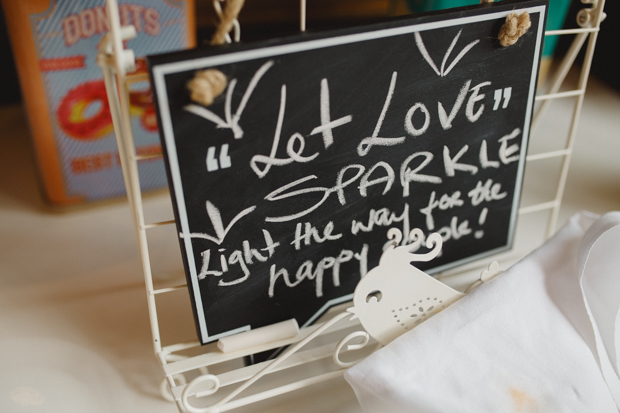 DONUTS
"Let LOVE"
SPARKLE
Light the way for the
happy